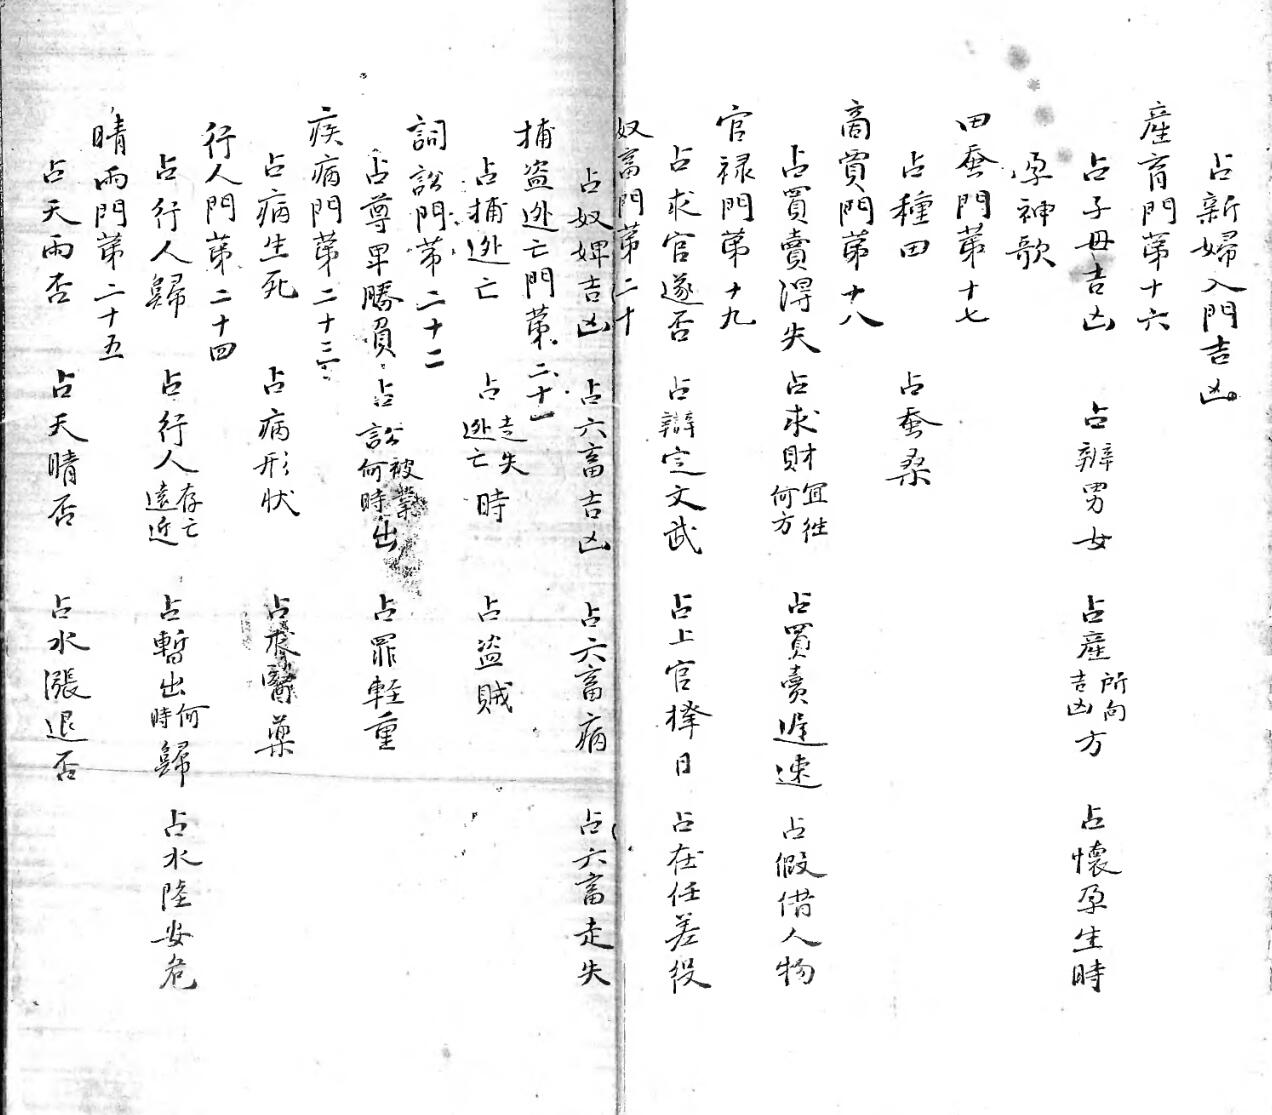 占新婦入門吉凶
産育門苐十六
占子母吉凶 占辨男女 占産所向吉凶方 占懷孕生時
孕神歌
田蚕門苐十七
占種田 占蚕桒
商賈門苐十八
占買賣淂失 占求財冝徃何方 占買賣遅速 占假借人物
官禄門苐十九
占求官遂否 占辯定文武 占上官擇日 占在任差役
奴畜門苐二十
占奴婢吉凶 占六畜吉凶 占六畜病 占六畜走失
捕盗迯亡門苐二十一
占捕迯亡 占走失迯亡時 占盗賊
詞訟門苐二十二
占尊卑勝負 占訟被禁何時出 占罪軽重
疾病門苐二十三
占病生死 占病形状 占求醫藥
行人門苐二十四
占行人歸 占行人存亡遠近 占暫出何時歸 占水陸安危
晴雨門苐二十五
占天雨否 占天晴否 占水漲退否